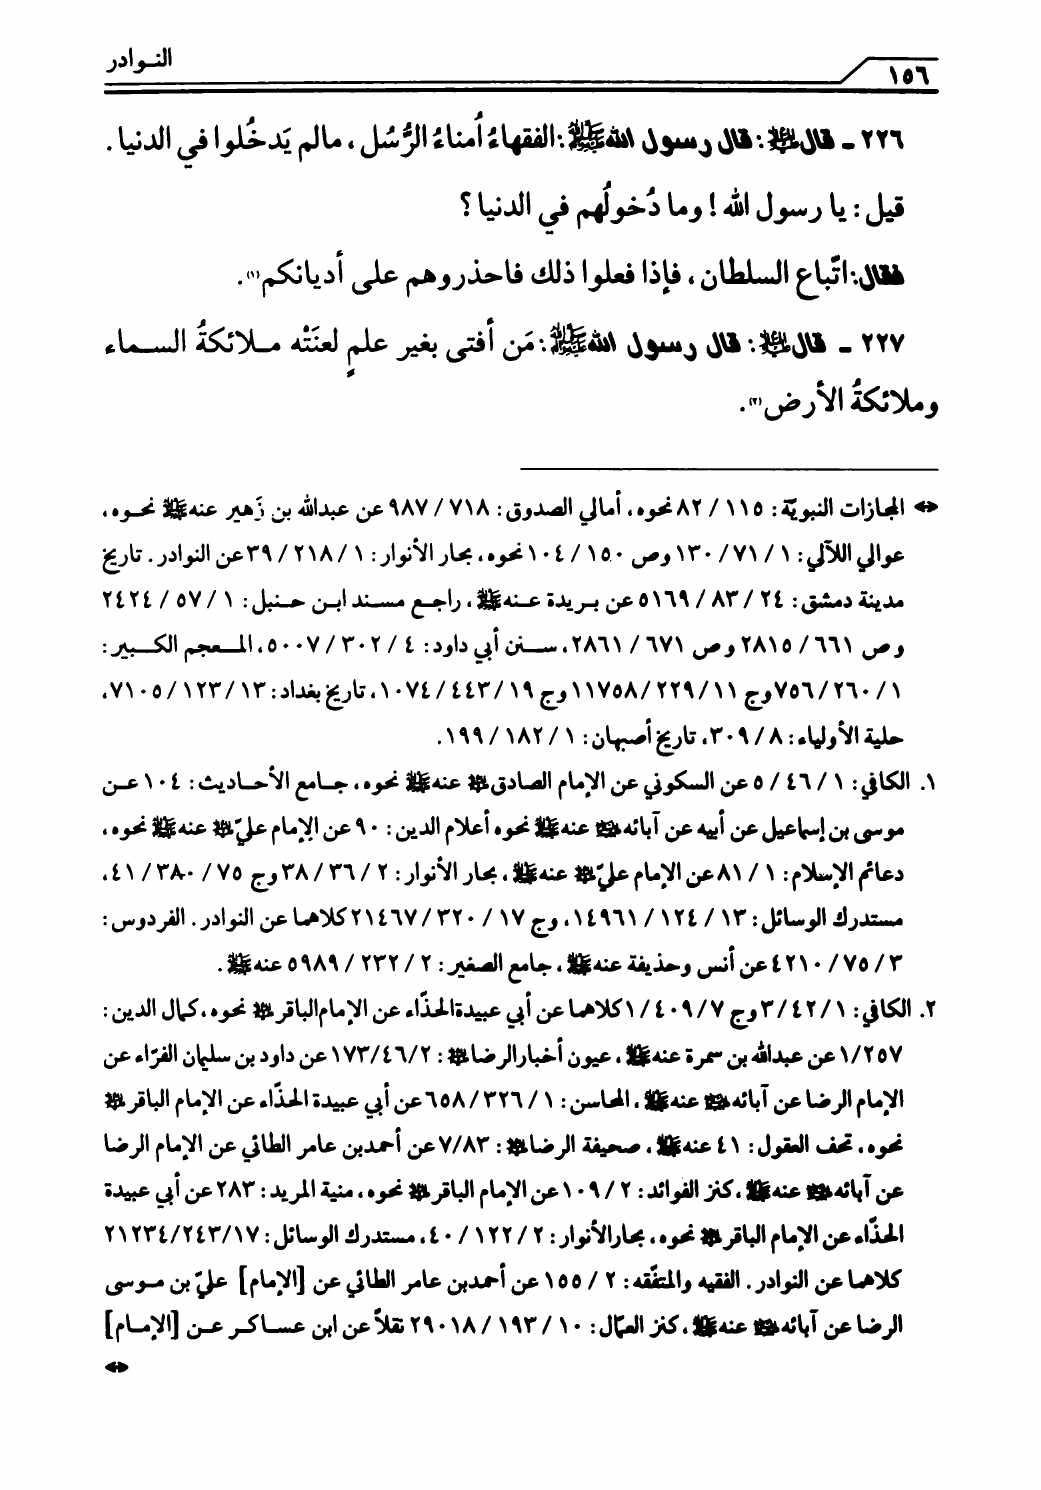 النـوادر
١٥٦
٢٢٦ ـ قال ﷺ: قال رسول الله ﷺ: الفقهاءُ أُمناءُ الرُّسُل، مالم يَدخُلوا في الدنيا.
قيل: يا رسول الله! وما دُخولُهم في الدنيا؟
فقال: اتّباع السلطان، فإذا فعلوا ذلك فاحذروهم على أديانكم(١).
٢٢٧ ـ قال ﷺ: قال رسول الله ﷺ: مَن أفتى بغير علمٍ لعنَتْه مـلائكةُ السـماء
وملائكةُ الأرض(٢).
⇐ المجازات النبويّة: ١١٥ / ٨٢ نحوه، أمالي الصدوق: ٧١٨ / ٩٨٧ عن عبدالله بن زَهير عنه ﷺ نحـوه،
عوالي اللآلي: ١ / ٧١ / ١٣٠ وص ١٥٠ / ١٠٤ نحوه، بحار الأنوار: ١ / ٢١٨ / ٣٩ عن النوادر. تاريخ
مدينة دمشق: ٢٤ / ٨٣ / ٥١٦٩ عن بـريدة عـنه ﷺ، راجـع مسـند ابـن حـنبل: ١ / ٥٧ / ٢٤٢٤
وص ٦٦١ / ٢٨١٥ وص ٦٧١ / ٢٨٦١، سـنن أبي داود: ٤ / ٣٠٢ / ٥٠٠٧، المـعجم الكـبير:
١ / ٢٦٠ / ٧٥٦ وج ١١ / ٢٢٩ / ١١٧٥٨ وج ١٩ / ٤٤٣ / ١٠٧٤، تاريخ بغداد: ١٣ / ١٢٣ / ٧١٠٥،
حلية الأولياء: ٨ / ٣٠٩، تاريخ أصبهان: ١ / ١٨٢ / ١٩٩.
١. الكافي: ١ / ٤٦ / ٥ عن السكوني عن الإمام الصادق ﷺ عنه ﷺ نحوه، جـامع الأحـاديث: ١٠٤ عـن
موسى بن إسماعيل عن أبيه عن آبائه ﷺ عنه ﷺ نحوه أعلام الدين: ٩٠ عن الإمام عليّ ﷺ عنه ﷺ نحوه،
دعائم الإسلام: ١ / ٨١ عن الإمام عليّ ﷺ عنه ﷺ، بحار الأنوار: ٢ / ٣٦ / ٣٨ وج ٧٥ / ٣٨٠ / ٤١،
مستدرك الوسائل: ١٣ / ١٢٤ / ١٤٩٦١، وج ١٧ / ٣٢٠ / ٢١٤٦٧ كلاهما عن النوادر. الفردوس:
٣ / ٧٥ / ٤٢١٠ عن أنس وحذيفة عنه ﷺ، جامع الصغير: ٢ / ٢٣٢ / ٥٩٨٩ عنه ﷺ.
٢. الكافي: ١ / ٤٢ / ٣ وج ٧ / ٤٠٩ / ١ كلاهما عن أبي عبيدة الحذّاء عن الإمام الباقر ﷺ نحوه، كمال الدين:
١/٢٥٧ عن عبدالله بن سمرة عنه ﷺ، عيون أخبار الرضا ﷺ: ١٧٣/٤٦/٢ عن داود بن سليمان الفرّاء عن
الإمام الرضا عن آبائه ﷺ عنه ﷺ، المحاسن: ١ / ٣٢٦ / ٦٥٨ عن أبي عبيدة الحذّاء عن الإمام الباقر ﷺ
نحوه، تحف العقول: ٤١ عنه ﷺ، صحيفة الرضا ﷺ: ٧/٨٣ عن أحمد بن عامر الطائي عن الإمام الرضا
عن آبائه ﷺ عنه ﷺ، كنز الفوائد: ٢ / ١٠٩ عن الإمام الباقر ﷺ نحوه، منية المريد: ٢٨٣ عن أبي عبيدة
الحذّاء عن الإمام الباقر ﷺ نحوه، بحار الأنوار: ٢ / ١٢٢ / ٤٠، مستدرك الوسائل: ٢١٢٣٤/٢٤٣/١٧
كلاهما عن النوادر. الفقيه والمتفّقه: ٢ / ١٥٥ عن أحمد بن عامر الطائي عن [الإمام] عليّ بن مـوسى
الرضا عن آبائه ﷺ عنه ﷺ، كنز العمّال: ١٠ / ١٩٣ / ٢٩٠١٨ نقلاً عن ابن عسـاكـر عـن [الإمـام]
⇐